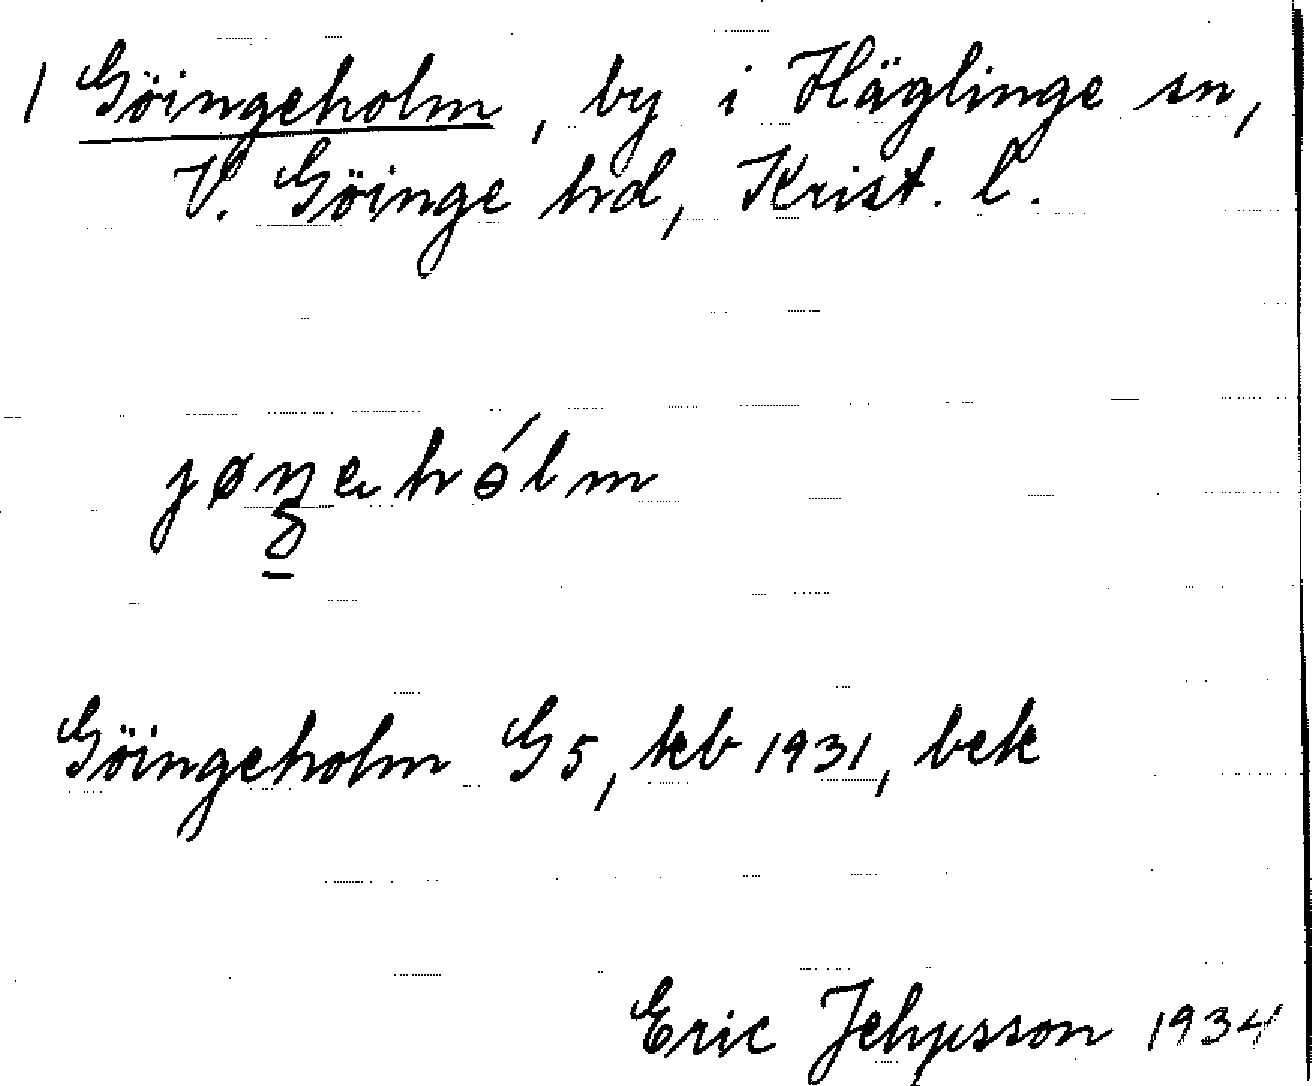 1 Göingeholm, by i Häglinge sn,
V. Göinge hrd, Krist. l.
Göingeholm G5, kb 1931, bek
Eric Jehpsson 1934